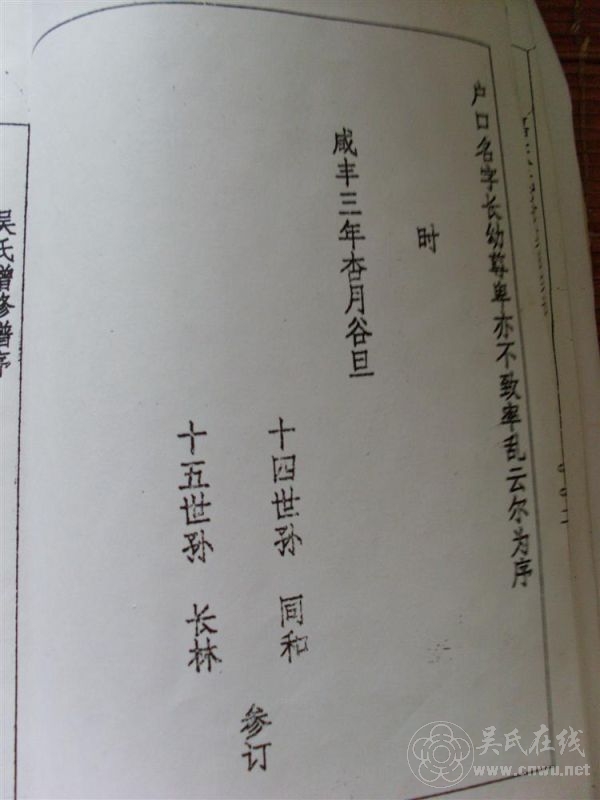 户口名字长幼尊卑亦不致率乱云尔为序
时
咸丰三年杏月谷旦
十四世孙 同和
十五世孙 长林
参订
吴氏增修谱序
吴氏在线
www.cnwu.net